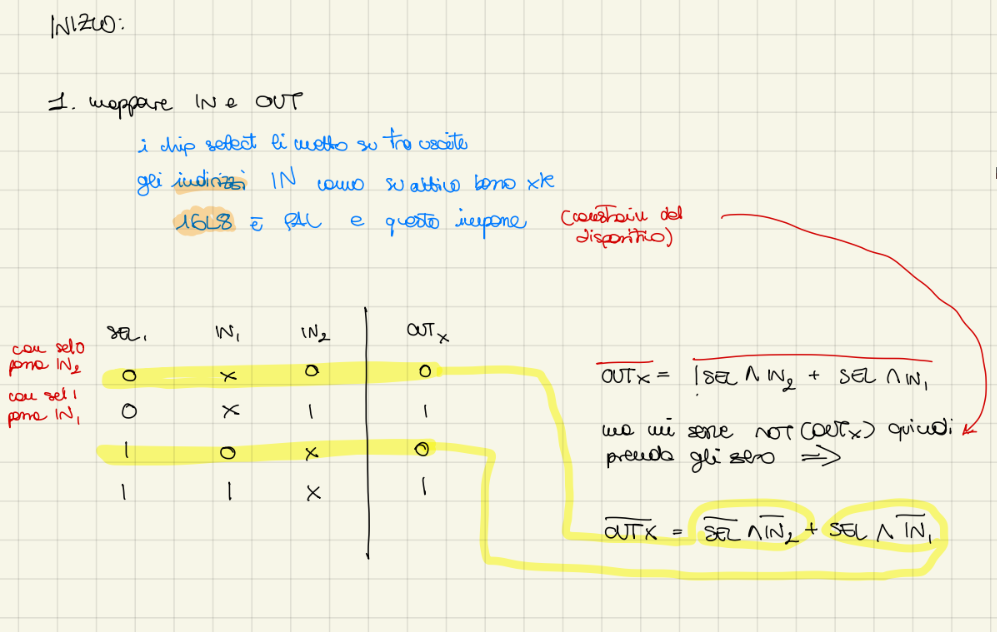 INIZIO:
1. mappare IN e OUT
i chip select li metto su tre uscite
gli indirizzi IN como su attivo basso xk
16L8 è PAL e questo impone (constrain del
dispositivo)
SEL₁ IN₁ IN₂ OUTₓ
con sel 0
passa IN₂
con sel 1
passa IN₁
0 x 0 0
0 x 1 1
1 0 x 0
1 1 x 1
\overline{OUTx} = \overline{!SEL ∧ IN₂ + SEL ∧ IN₁}
ma mi serve NOT(OUTₓ) quindi
prendo gli zero ⇒
\overline{OUTx} = \overline{SEL} ∧ \overline{IN}₂ + SEL ∧ \overline{IN}₁